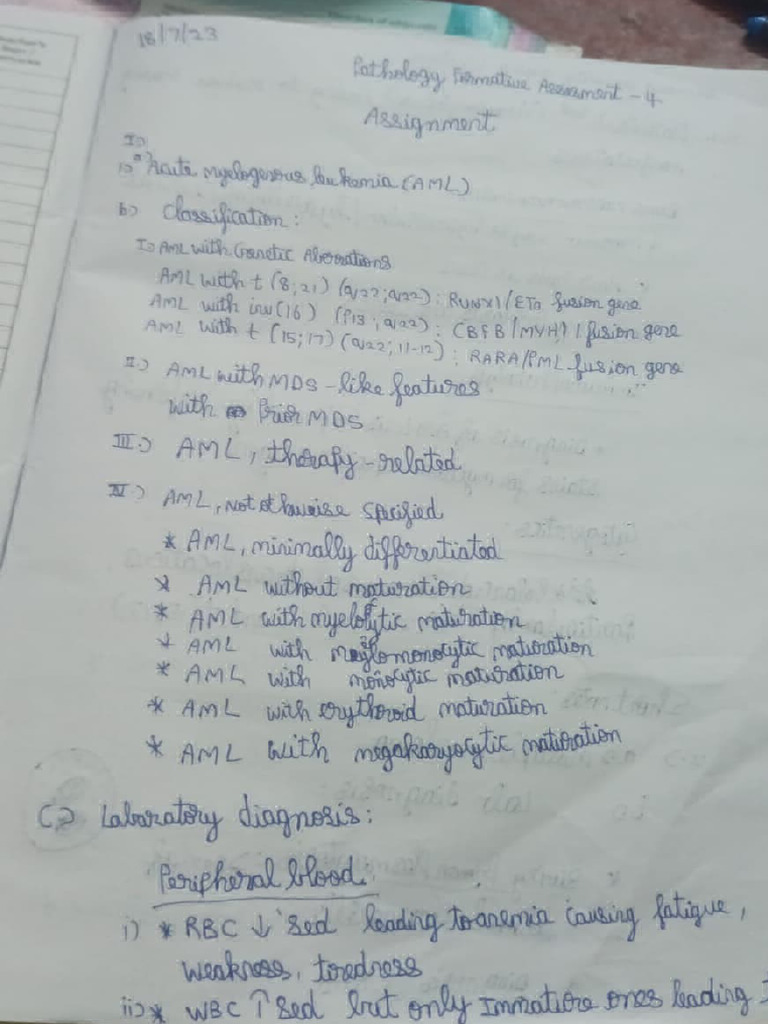 18/7/23
Pathology Formative Assessment - 4
Assignment
I)
1) a) Acute myelogenous leukemia (AML)
b) Classification:
I) AML with Genetic Aberrations
AML with t (8;21) (q22;q22): RUNX1/ETO fusion gene
AML with inv(16) (p13;q22): CBFB/MYH11 fusion gene
AML with t (15;17) (q22;11-12): RARA/PML fusion gene
II) AML with MDS-like features
with Prior MDS
III) AML, therapy-related
IV) AML, Not otherwise specified
* AML, minimally differentiated
* AML without maturation
* AML with myelolytic maturation
* AML with myelomonocytic maturation
* AML with monocytic maturation
* AML with erythroid maturation
* AML with megakaryocytic maturation
C) Labaratory diagnosis:
Peripheral blood
i) * RBC ↓'sed leading to anemia causing fatigue,
weakness, toredness
ii) * WBC ↑sed but only Immature ones leading